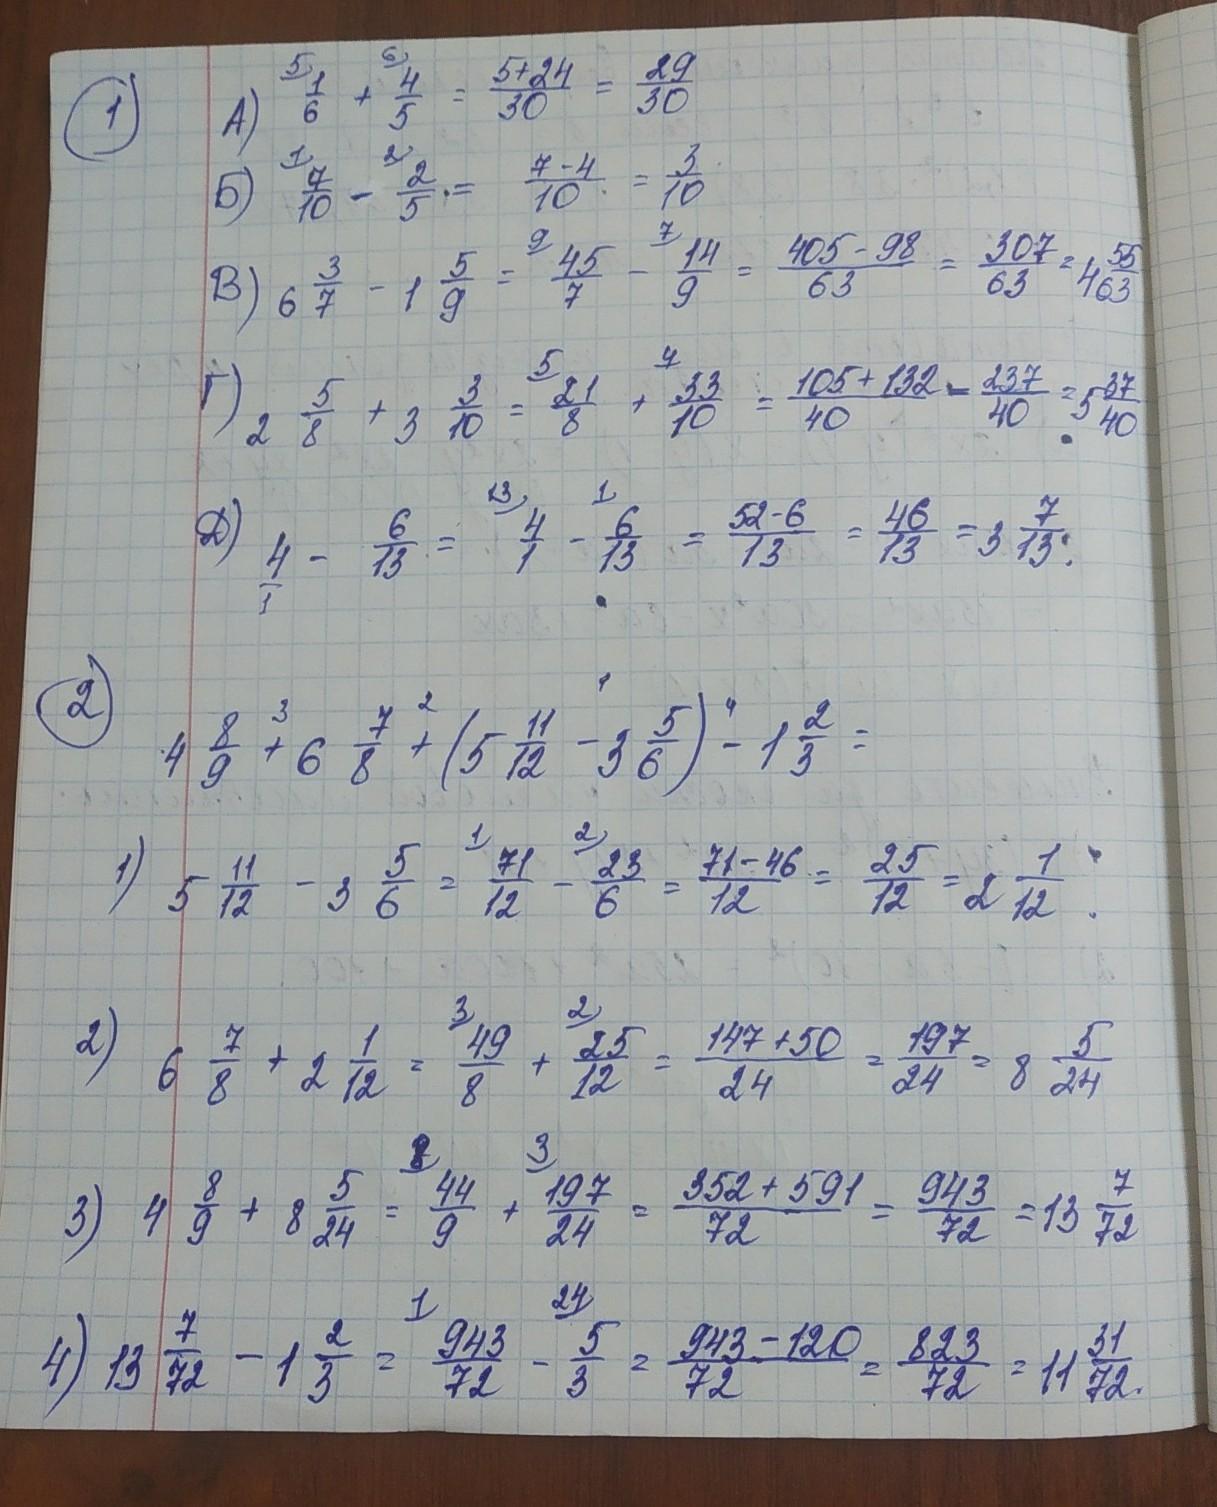 1) А) ⁵⁾1/6 + ⁶⁾4/5 = (5+24)/30 = 29/30
Б) ¹⁾7/10 - ²⁾2/5 = (7-4)/10 = 3/10
В) 6 3/7 - 1 5/9 = ⁹⁾45/7 - ⁷⁾14/9 = (405-98)/63 = 307/63 = 4 55/63
Г) 2 5/8 + 3 3/10 = ⁵⁾21/8 + ⁴⁾33/10 = (105+132)/40 = 237/40 = 5 37/40
Д) 4/1 - 6/13 = ¹³⁾4/1 - ¹⁾6/13 = (52-6)/13 = 46/13 = 3 7/13.
2) 4 8/9 +³ 6 7/8 +² (5 11/12 -¹ 3 5/6) -⁴ 1 2/3 =
1) 5 11/12 - 3 5/6 = ¹⁾71/12 - ²⁾23/6 = (71-46)/12 = 25/12 = 2 1/12.
2) 6 7/8 + 2 1/12 = ³⁾49/8 + ²⁾25/12 = (147+50)/24 = 197/24 = 8 5/24
3) 4 8/9 + 8 5/24 = ⁸⁾44/9 + ³⁾197/24 = (352+591)/72 = 943/72 = 13 7/72
4) 13 7/72 - 1 2/3 = ¹⁾943/72 - ²⁴⁾5/3 = (943-120)/72 = 823/72 = 11 31/72.